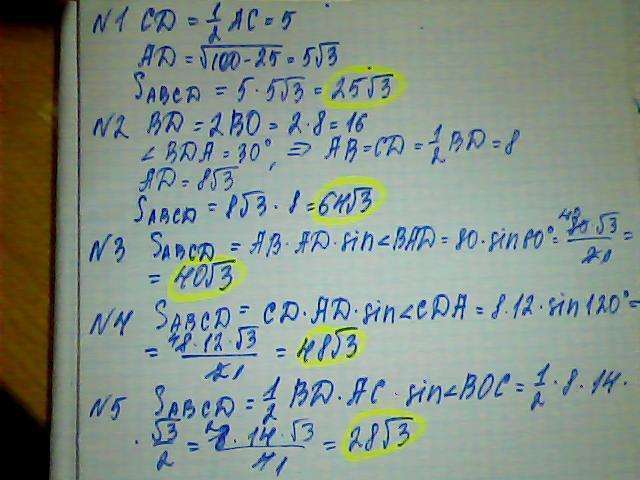 N1 CD = 1/2 AC = 5
AD = √100-25 = 5√3
SABCD = 5 · 5√3 = 25√3
N2 BD = 2BO = 2·8 = 16
∠BDA = 30°, ⇒ AB = CD = 1/2 BD = 8
AD = 8√3
SABCD = 8√3 · 8 = 64√3
N3 SABCD = AB · AD · sin∠BAD = 80 · sin60° = 40 80·√3/2 1 =
= 40√3
N4 SABCD = CD · AD · sin∠CDA = 8·12·sin120° =
= 4 8·12·√3/2 1 = 48√3
N5 SABCD = 1/2 BD · AC · sin∠BOC = 1/2 · 8 · 14 ·
· √3/2 = 2 8·14·√3/4 1 = 28√3